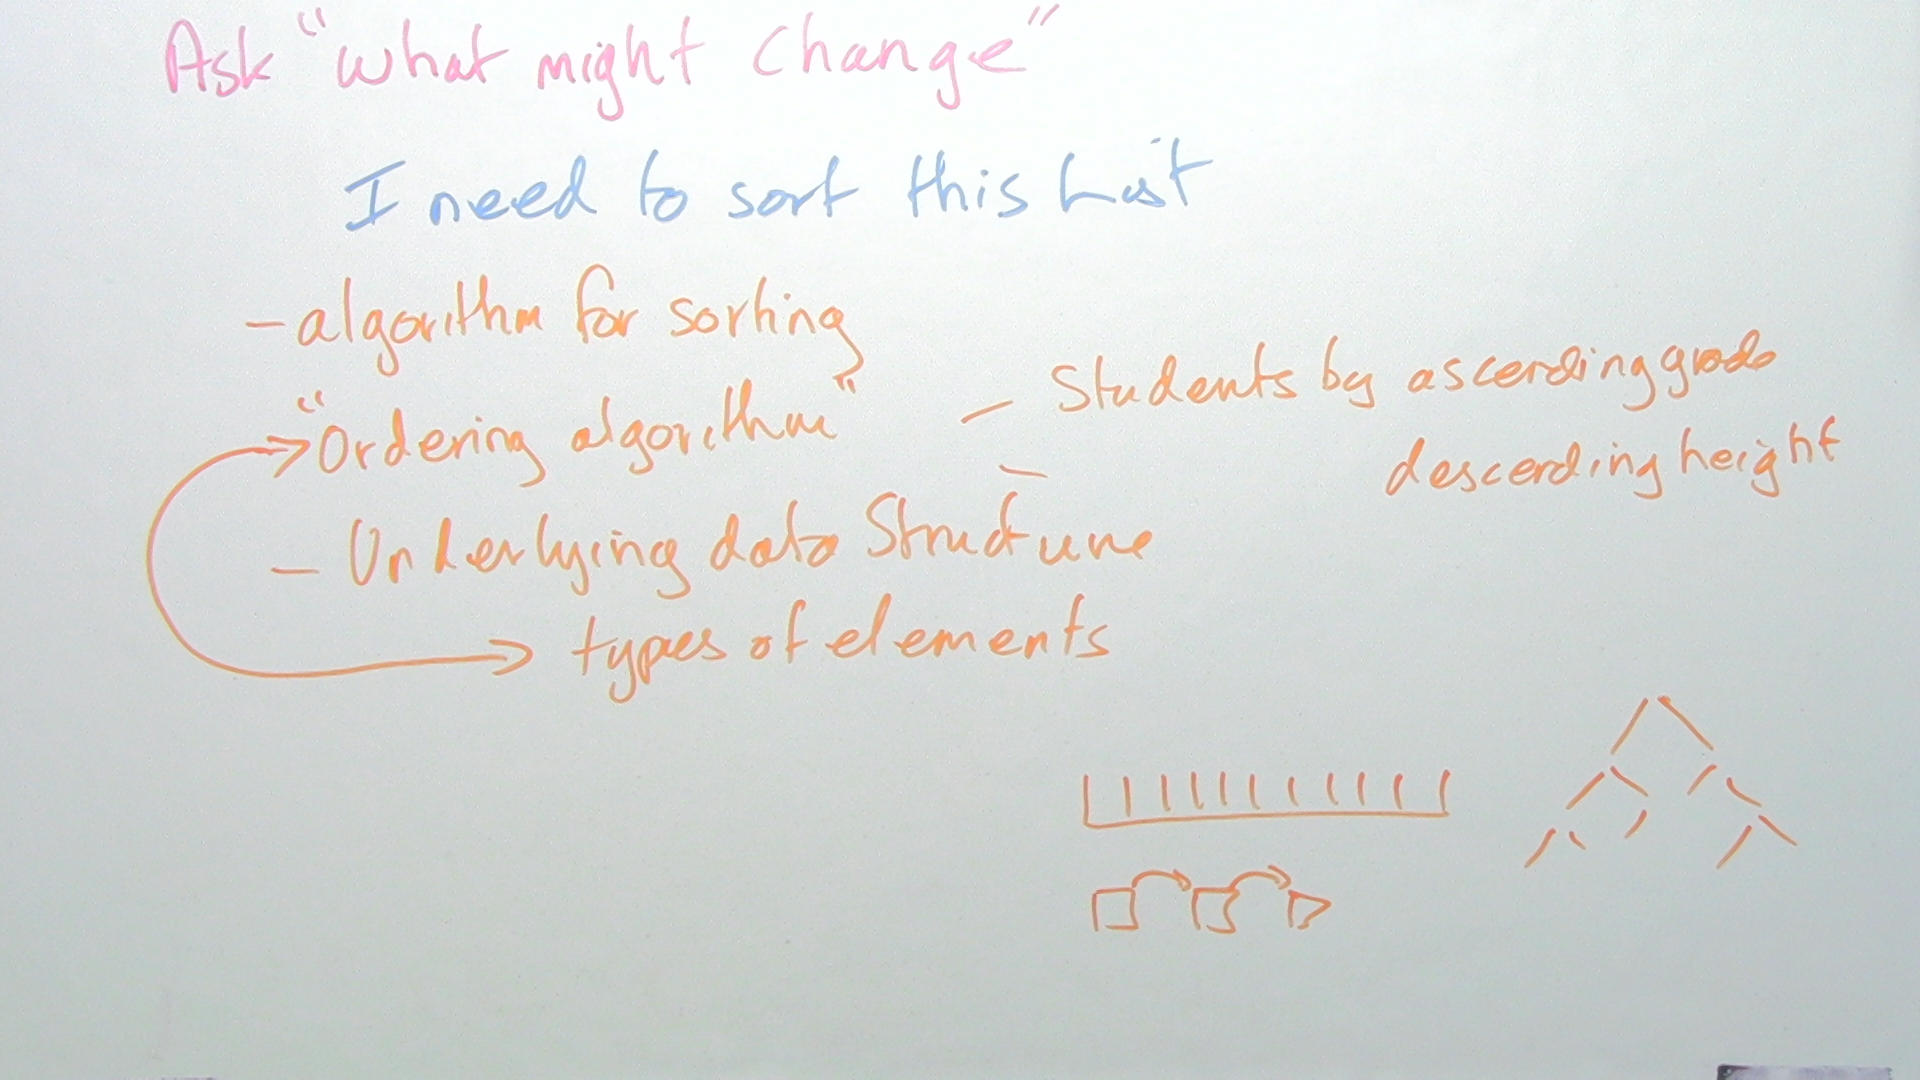 Ask "what might change"
I need to sort this list
- algorithm for sorting
"Ordering algorithm" - Students by ascending grade
- descending height
- Underlying data Structure
types of elements